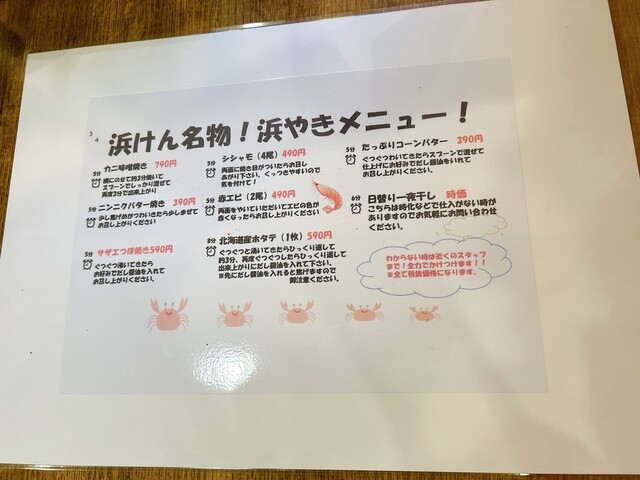 3 4
浜けん名物！浜やきメニュー！
5分 カニ味噌焼き 790円
網にのせて約3分焼いて
スプーンでしっかり混ぜて
再度3分で出来上がり
5分 ニンニクバター焼き 390円
少し焦げめがついてきたら少しまぜて
お召し上がりください
5分 サザエつぼ焼き590円
ぐつぐつ沸いてきたら
お好みでだし醤油を入れて
お召し上がりください。
5分 シシャモ（4尾）490円
両面に焼き目がついたらお召し
あがり下さい。くっつきやすいので
気を付けて！
5分 赤エビ（2尾）490円
両面をやいていただいてエビの色が
白くなったらお召し上がりください
8分 北海道産ホタテ（1枚）590円
ぐつぐつと沸いてきたらひっくり返して
約3分、再度ぐつぐつしたらひっくり返して
出来上がりにだし醤油を入れて下さい。
※先にだし醤油を入れると焦げますので
御注意ください。
5分 たっぷりコーンバター 390円
ぐつぐつわいてきたらスプーンで混ぜて
仕上げにお好みでだし醤油をいれて
お召し上がりください
6分 日替り一夜干し 時価
こちらは時化などで仕入がない時が
ありますのでお気軽にお問い合わせ
ください。
わからない時は近くのスタッフ
まで！全力でかけつけます！！
※全て税抜価格になります。